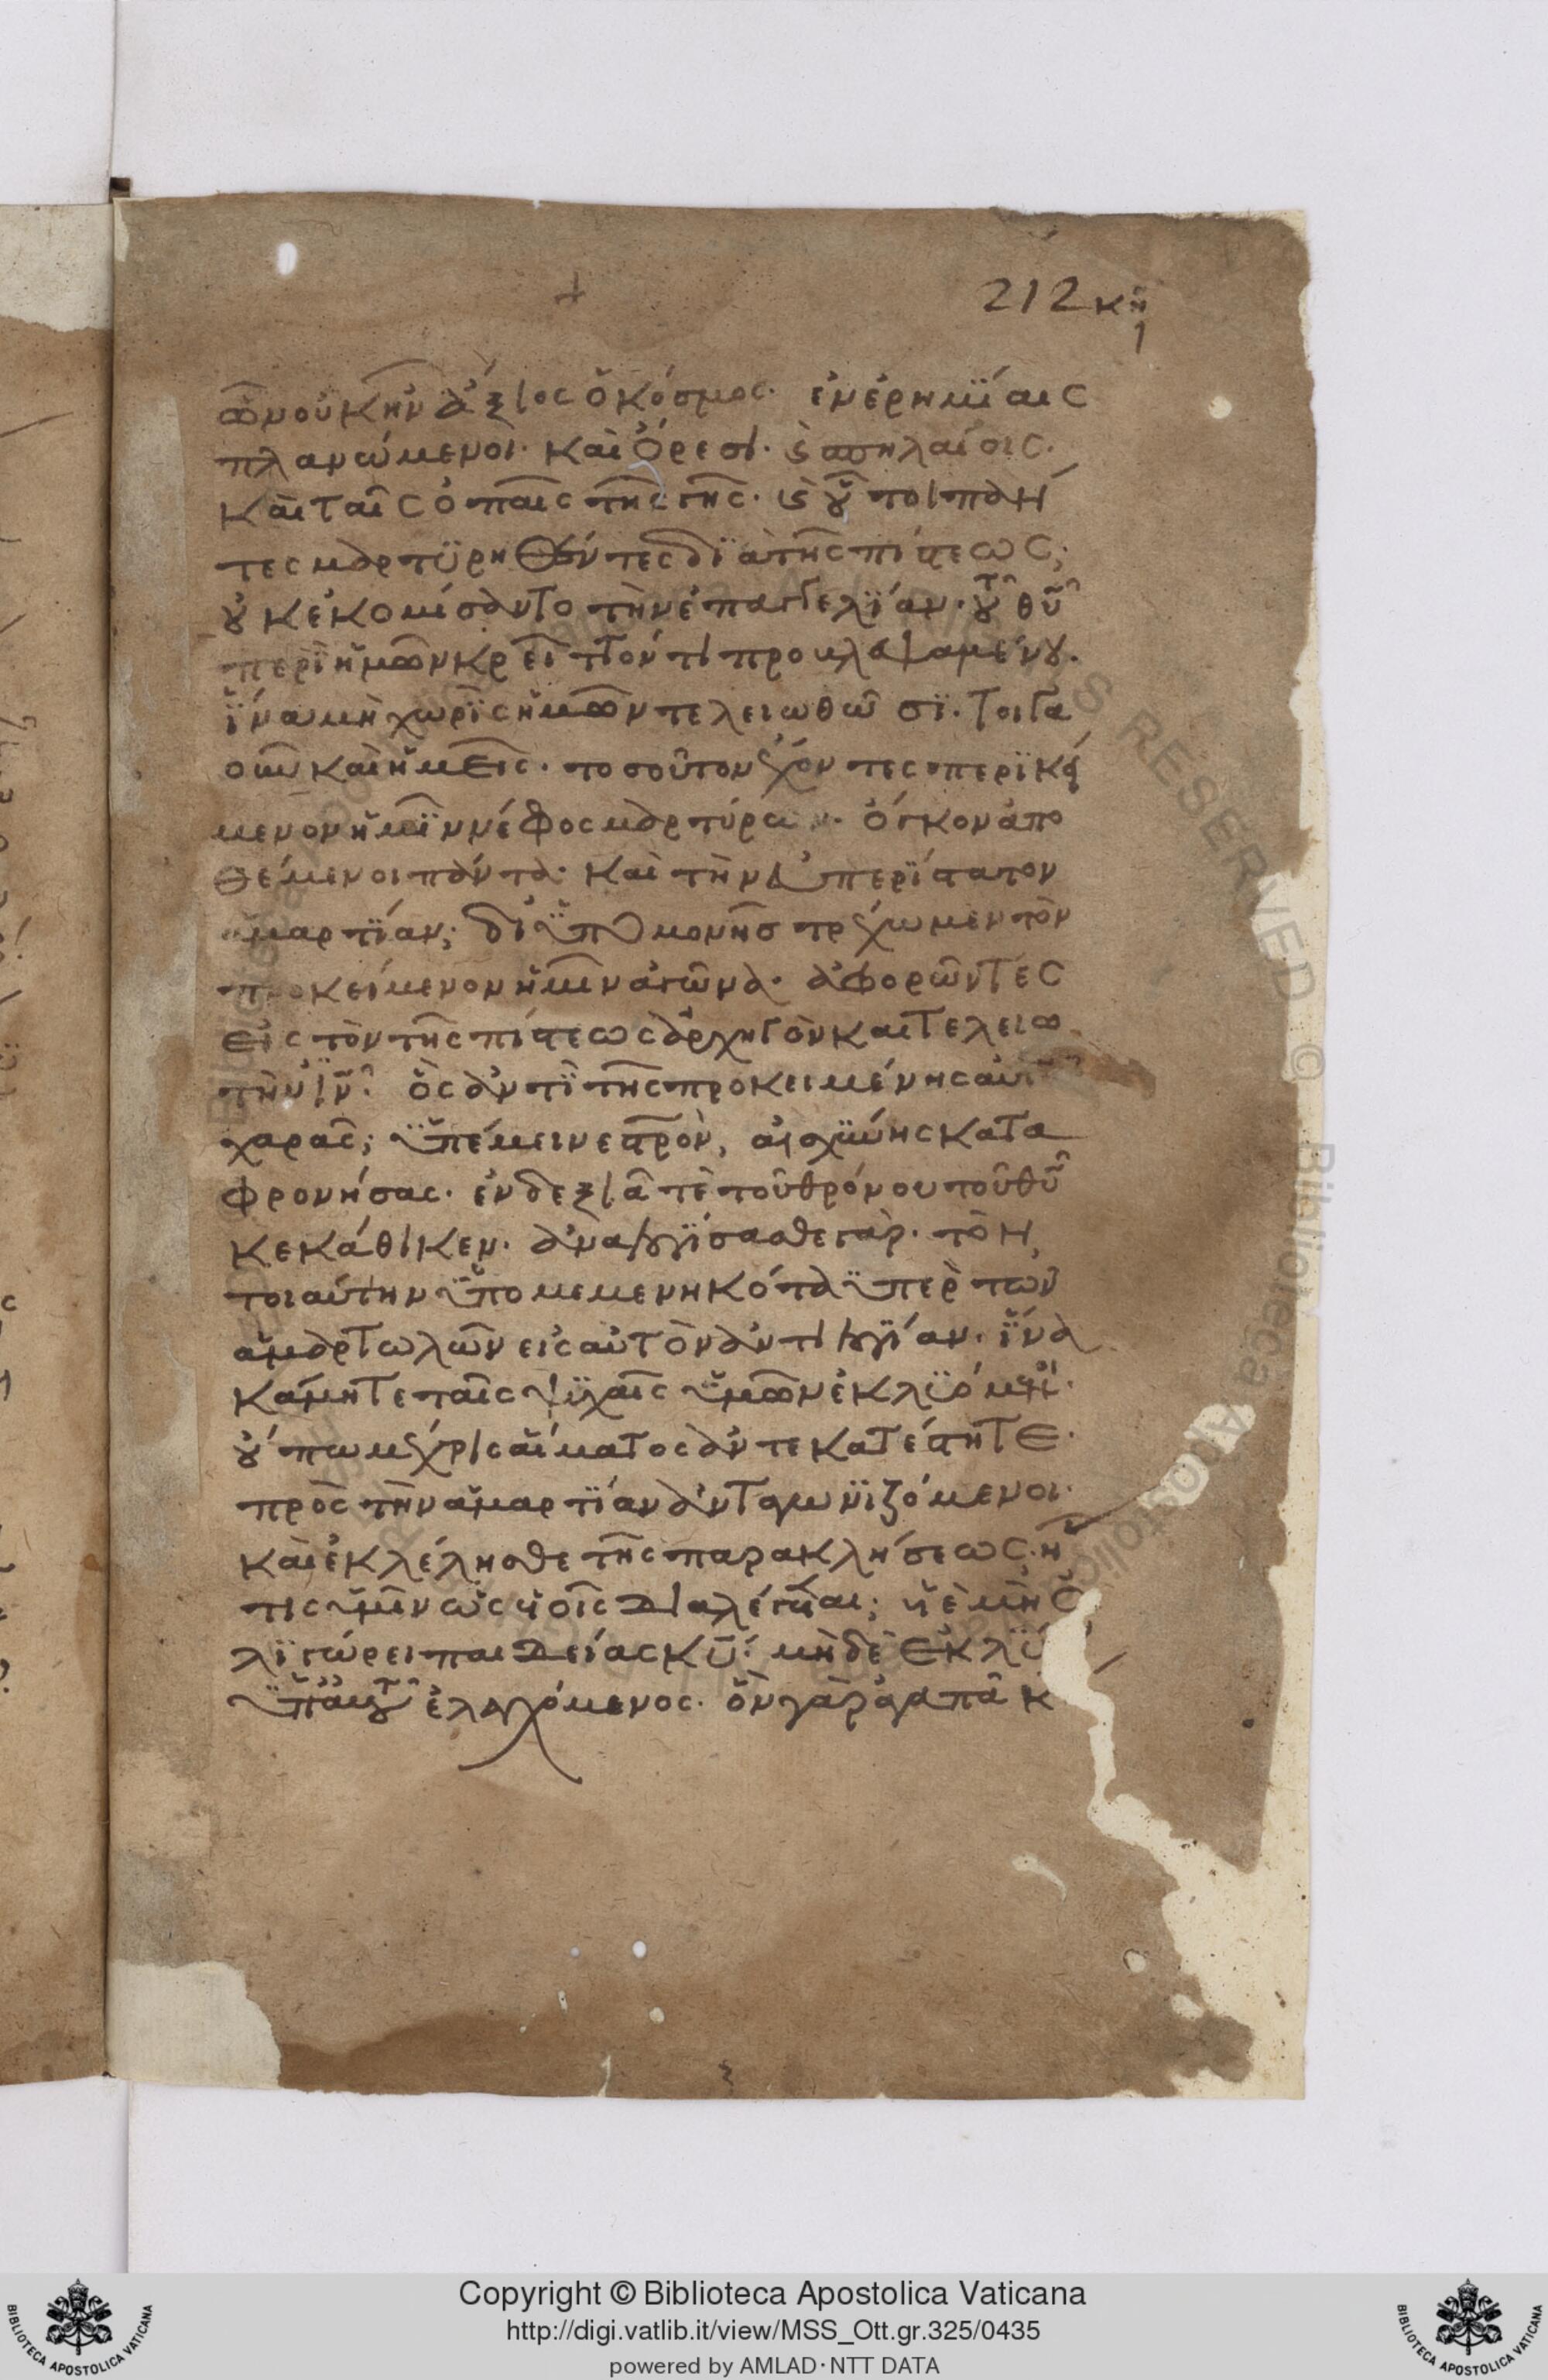 212 κη
1
ὧν οὐκ ἦν ἄξιος ὁ κόσμος· ἐν ἐρημΐαις
πλανώμενοι· καὶ ὄρεσι· ϛ σπηλαίοις·
καὶ ταῖς ὀπαῖς τῆς γῆς· ϛ οὗτοι πάν
τες μαρτϋρηθέντες δϊὰ τῆς πίστεως;
οὐκ ἐκομίσαντο τὴν ἐπαγγελΐαν· τοῦ θῦ
περὶ ἡμῶν κρεῖττόν τι προβλεψαμένου·
ἵνα μὴ χωρὶς ἡμῶν τελειωθῶσϊ· τοιγα
οῦν καὶ ἡμεῖς· τοσοῦτον ἔχοντες περϊκεί
μενον ἡμῖν νέφος μαρτύρων· ὄγκον ἀπο
θέμενοι πάντα· καὶ τὴν εὐπερίστατον
ἁμαρτΐαν; δι ὑπομονῆσ τρέχωμεν τὸν
προκείμενον ἡμῖν ἀγῶνα· ἀφορῶντες
εἰς τὸν τῆς πίστεως ἀρχηγὸν καὶ τελειω
τὴν ἰν̅· ὃς ἀντὶ τῆς προκειμένης αὐτῷ
χαρᾶς; ὑπέμεινε στρ̅ον, αἰσχύνης κατα
φρονήσας· ἐν δεξιᾷ τὲ τοῦ θρόνου τοῦ θῦ
κεκάθικεν· ἀναλογίσασθε γὰρ· τὸν
τοιαύτην ὑπομεμενηκότα ὑπὲρ τῶν
ἁμαρτωλῶν εἰς αὐτὸν ἀντιλογίαν· ἵνα
κάμητε ταῖς ψυχαῖς ὑμῶν ἐκλϋόμενοι·
οὔπω μέχρις αἵματος ἀντεκατέστητε·
πρὸς τὴν ἁμαρτΐαν ἀνταγωνϊζόμενοι·
καὶ ἐκλέλησθε τῆς παρακλήσεως· ἥ
τις ὑμῖν ὡς υἱοῖς διαλέγεται; υἱὲ μὴ ὀ
λϊγώρει παιδείας κῡ· μὴδὲ ἐκλύ
ὑπ' αὐτοῦ ἐλεγχόμενος· ὃν γὰρ ἀγαπᾷ κ
Copyright © Biblioteca Apostolica Vaticana
http://digi.vatlib.it/view/MSS_Ott.gr.325/0435
powered by AMLAD·NTT DATA
BIBLIOTECA APOSTOLICA VATICANA
BIBLIOTECA APOSTOLICA VATICANA